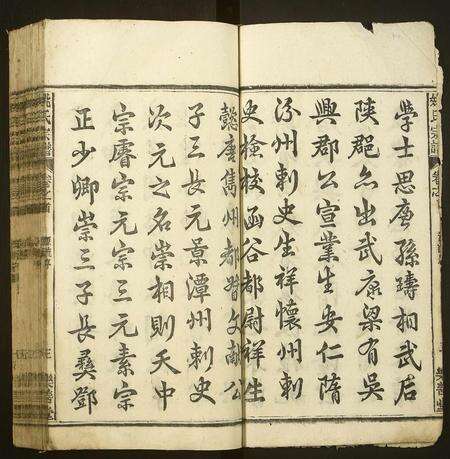 姚氏宗譜
學士思廉孫璹相武后
陝郡亦出武康梁有吳
興郡公宣業生安仁隋
汾州刺史生祥懷州刺
史檢校函谷都尉祥生
懿唐雟州都督文獻公
子三長元景潭州刺史
次元之名崇相則天中
宗睿宗元宗三元素宗
正少卿崇三子長彝鄧
姚氏宗譜